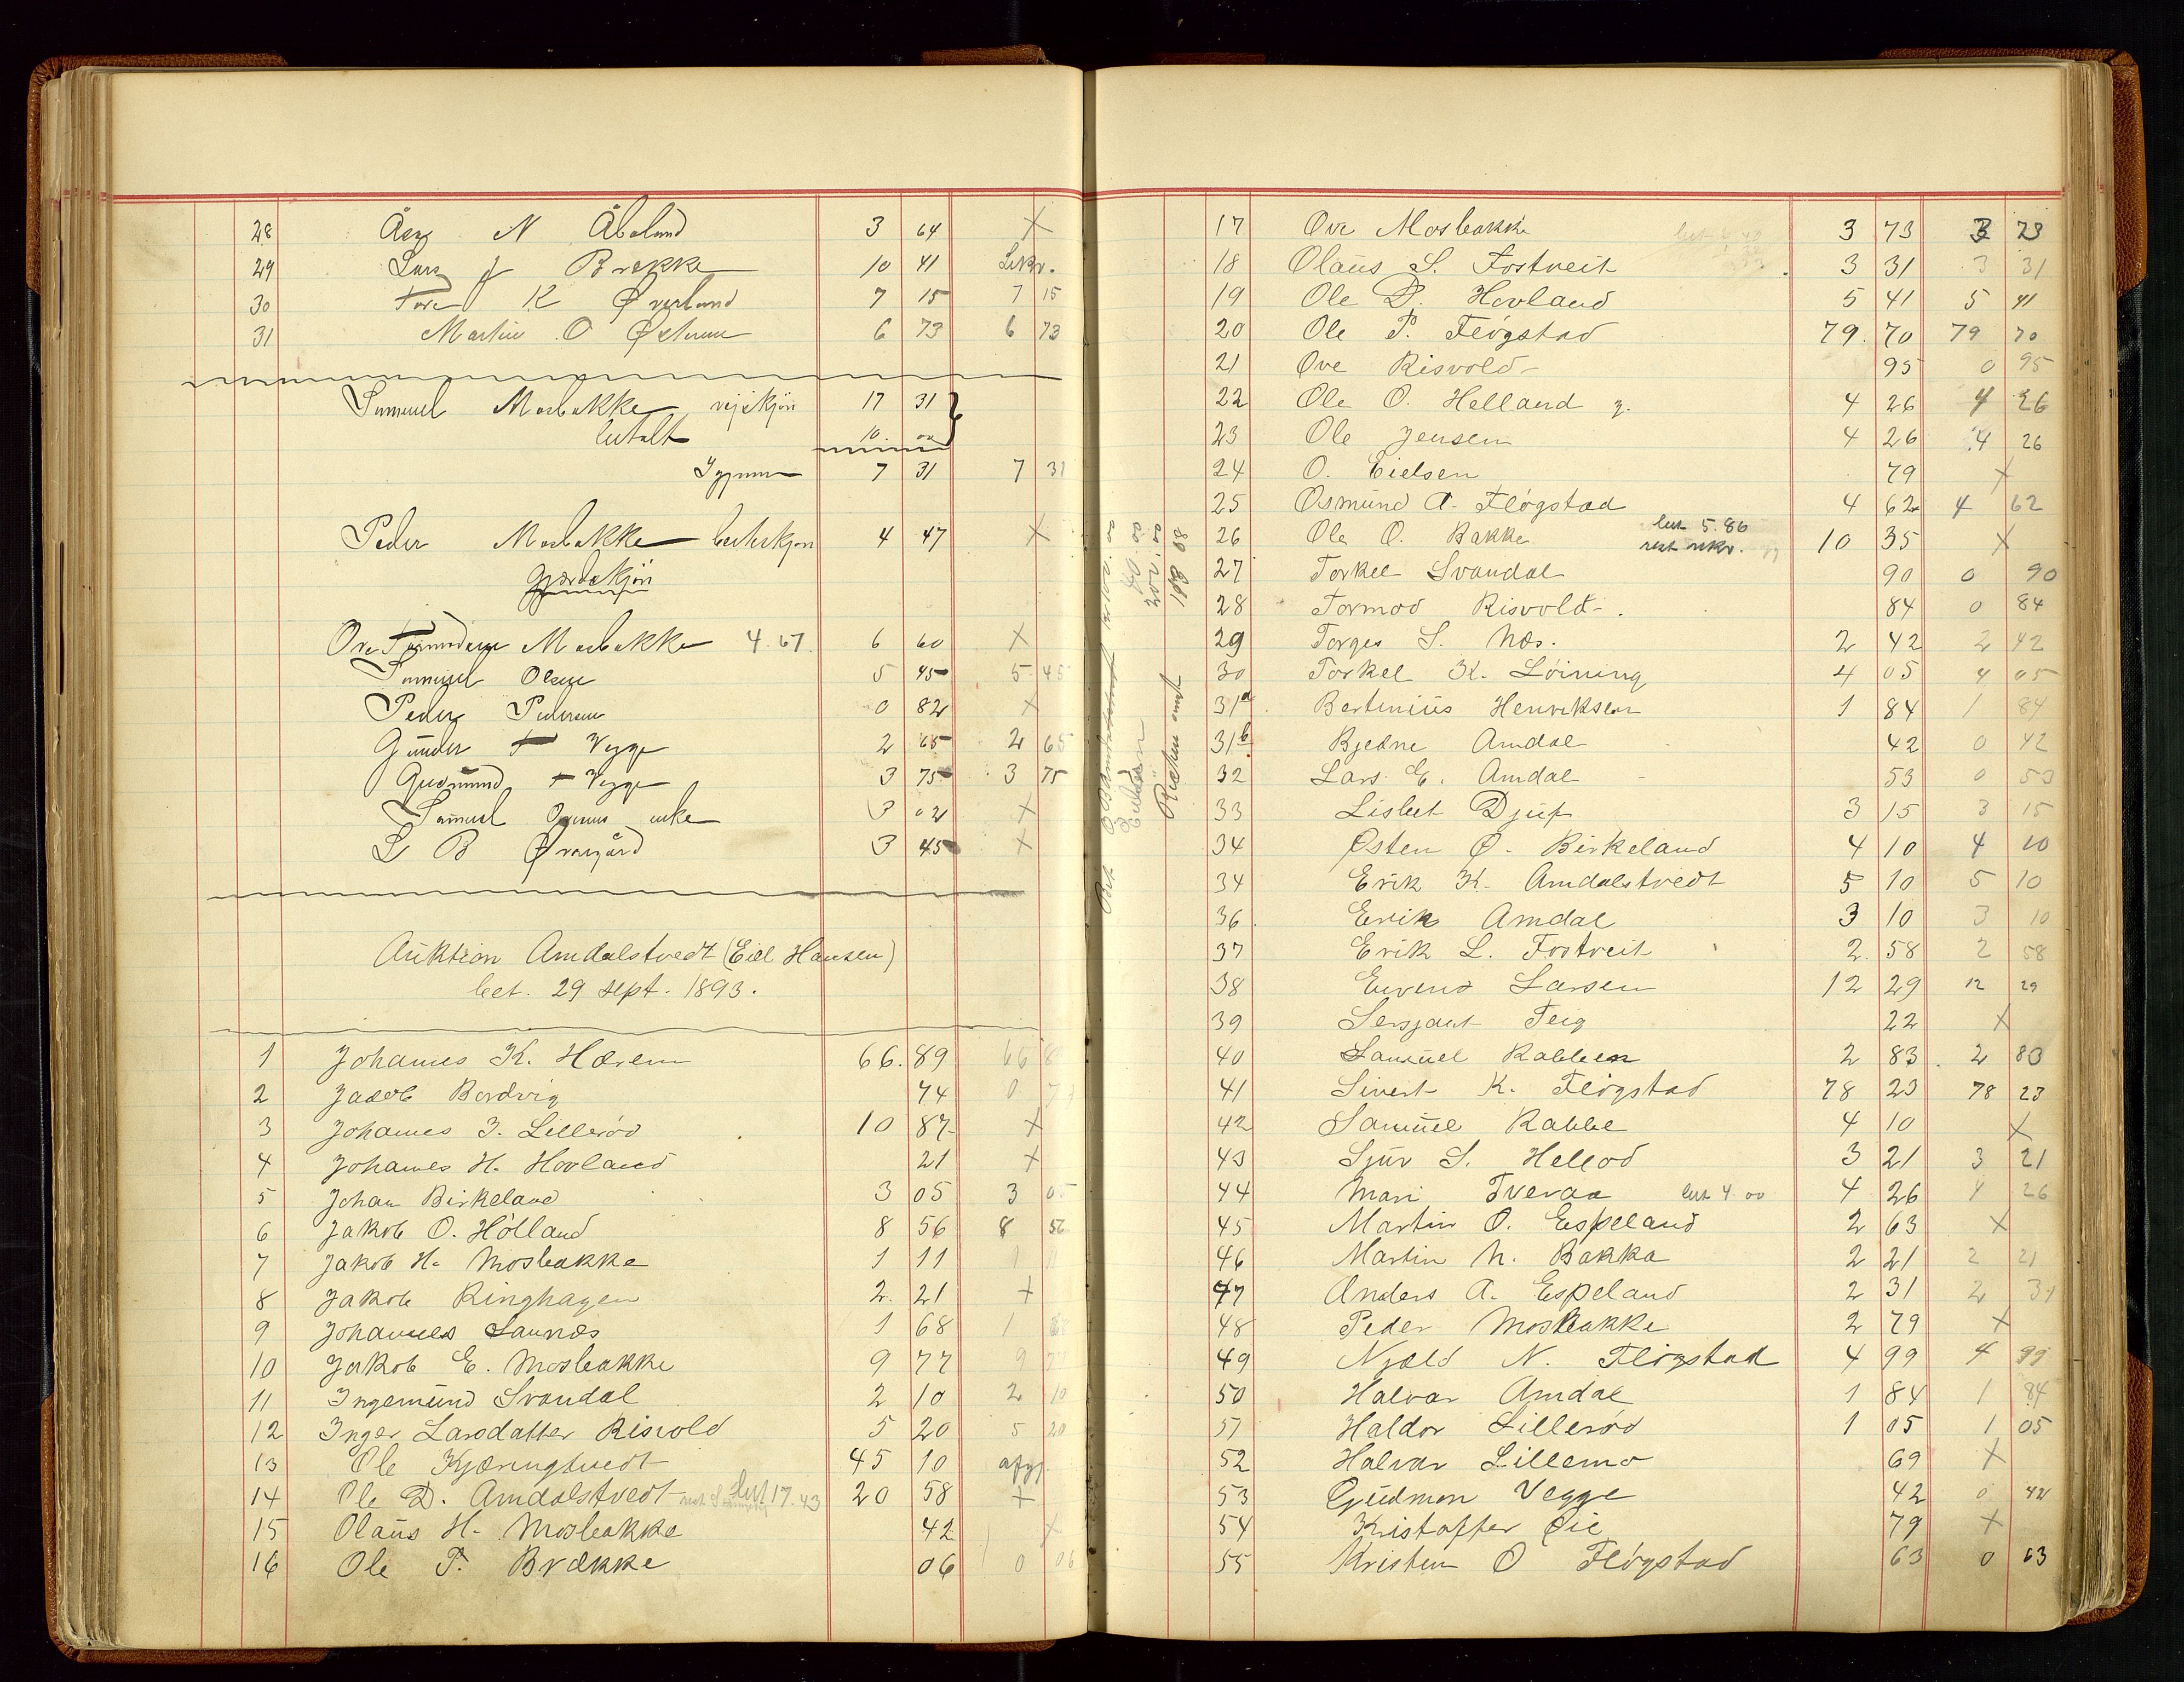 28 Aen N Åbeland 3 64 X
29 Lars J Brekke 10 41 Lekv.
30 Tore K Øverland 7 15 7 15
31 Martin O 6 73 6 73
Samuel Mosbakke vejskjøn 17 31
betalt 10. 00
Igjen 7 31 7 31
Peder Mosbakke 4 47 X
Gjærdeskjøn
Ove Mosbakke 4.67 6 60 X
Samuel Olsen 5 45 5 45
Peder Pedersen 0 82 X
Gunder Vegge 2 65 2 65
Gudmund Vegge 3 75 3 75
Samuel enke 3 02 X
L B Øvregård 3 45 X
Auktion Amdalstvedt (Eiel Hansen)
bet. 29 sept. 1893.
1 Johannes K. Hærem 66. 89 66 8
2 Jacob Bordvig 74 0 74
3 Johannes J. Lillerød 10 87 X
4 Johannes H. Hovland 21 X
5 Johan Birkeland 3 05 3 05
6 Jakob O. Hölland 8 56 8 56
7 Jakob H. Mosbakke 1 11 1 11
8 Jakob Ringhagen 2. 21 X
9 Johannes Saunes 1 68 1 68
10 Jakob E. Mosbakke 9 77 9 77
11 Ingemund Svandal 2 10 2 10
12 Inger Larsdatter Risvold 5 20 5 20
13 Ole Kjæringtvedt 45 10 afgj
14 Ole D. Amdalstvedt bet 17.43 20 58 X
15 Olaus H. Mosbakke 42 X
16 Ole P. Brække 06 0 06
17 Ove Mosbakke 3 73 3 73
18 Olaus S. Fostveit 3 31 3 31
19 Ole D. Hovland 5 41 5 41
20 Ole P. Flögstad 79. 70 79 70
21 Ove Risvold 95 0 95
22 Ole O. Helland 4 26 4 26
23 Ole Jensen 4 26 4 26
24 O. Eielsen 79 X
25 Osmund A. Flögstad 4 62 4 62
26 Ole O. Bakke bet 5.86 rest rekv. 10 35 X
27 Torkel Svandal 90 0 90
28 Tormod Risvold 84 0 84
29 Torges S. Næs. 2 42 2 42
30 Torkel K. Löining 4 05 4 05
31a Bertinius Henriksen 1 84 1 84
31b Bjedne Amdal 42 0 42
32 Lars E. Amdal 53 0 53
33 Lisbet Djup 3 15 3 15
34 Østen Ø. Birkeland 4 10 4 10
34 Erik K. Amdalstvedt 5 10 5 10
36 Erik Amdal 3 10 3 10
37 Erik L. Fostveit 2. 58 2 58
38 Eivend Larsen 12 29 12 29
39 Sersjant Teig 22 X
40 Samuel Rabben 2 83 2 83
41 Sivert K. Flögstad 78 23 78 23
42 Samuel Rabbe 4 10 X
43 Sjur S. Hellod 3 21 3 21
44 Mari Tveraa bet 4.00 4 26 4 26
45 Martin O. Espeland 2 63 X
46 Martin N. Bakka 2 21 2 21
47 Anders A. Espeland 2 31 2 31
48 Peder Mosbakke 2 79 X
49 Njæld N. Flögstad 4 99 4 99
50 Halvar Amdal 1 84 1 84
51 Haldor Lillerød 1 05 1 05
52 Halvar Lillemo 69 X
53 Gudmon Vegge 42 0 42
54 Kristoffer Øie 79 X
55 Kristen O Flögstad 63 0 63